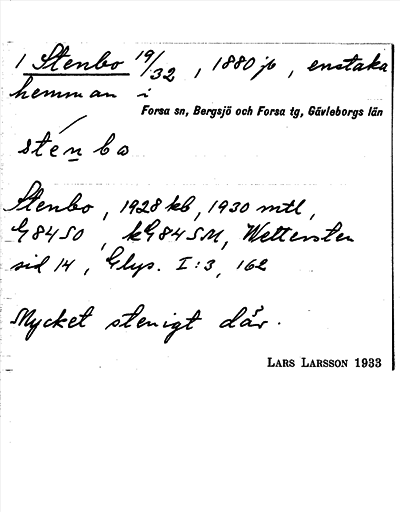 1 Stenbo 19/32, 1880 jb, enstaka
hemman i
Forsa sn, Bergsjö och Forsa tg, Gävleborgs län
sténbo
Stenbo, 1928 kb, 1930 mtl,
G84SO, kG84SM, Wettersten
sid 14, Glys. I:3, 162
Mycket stenigt där.
LARS LARSSON 1933